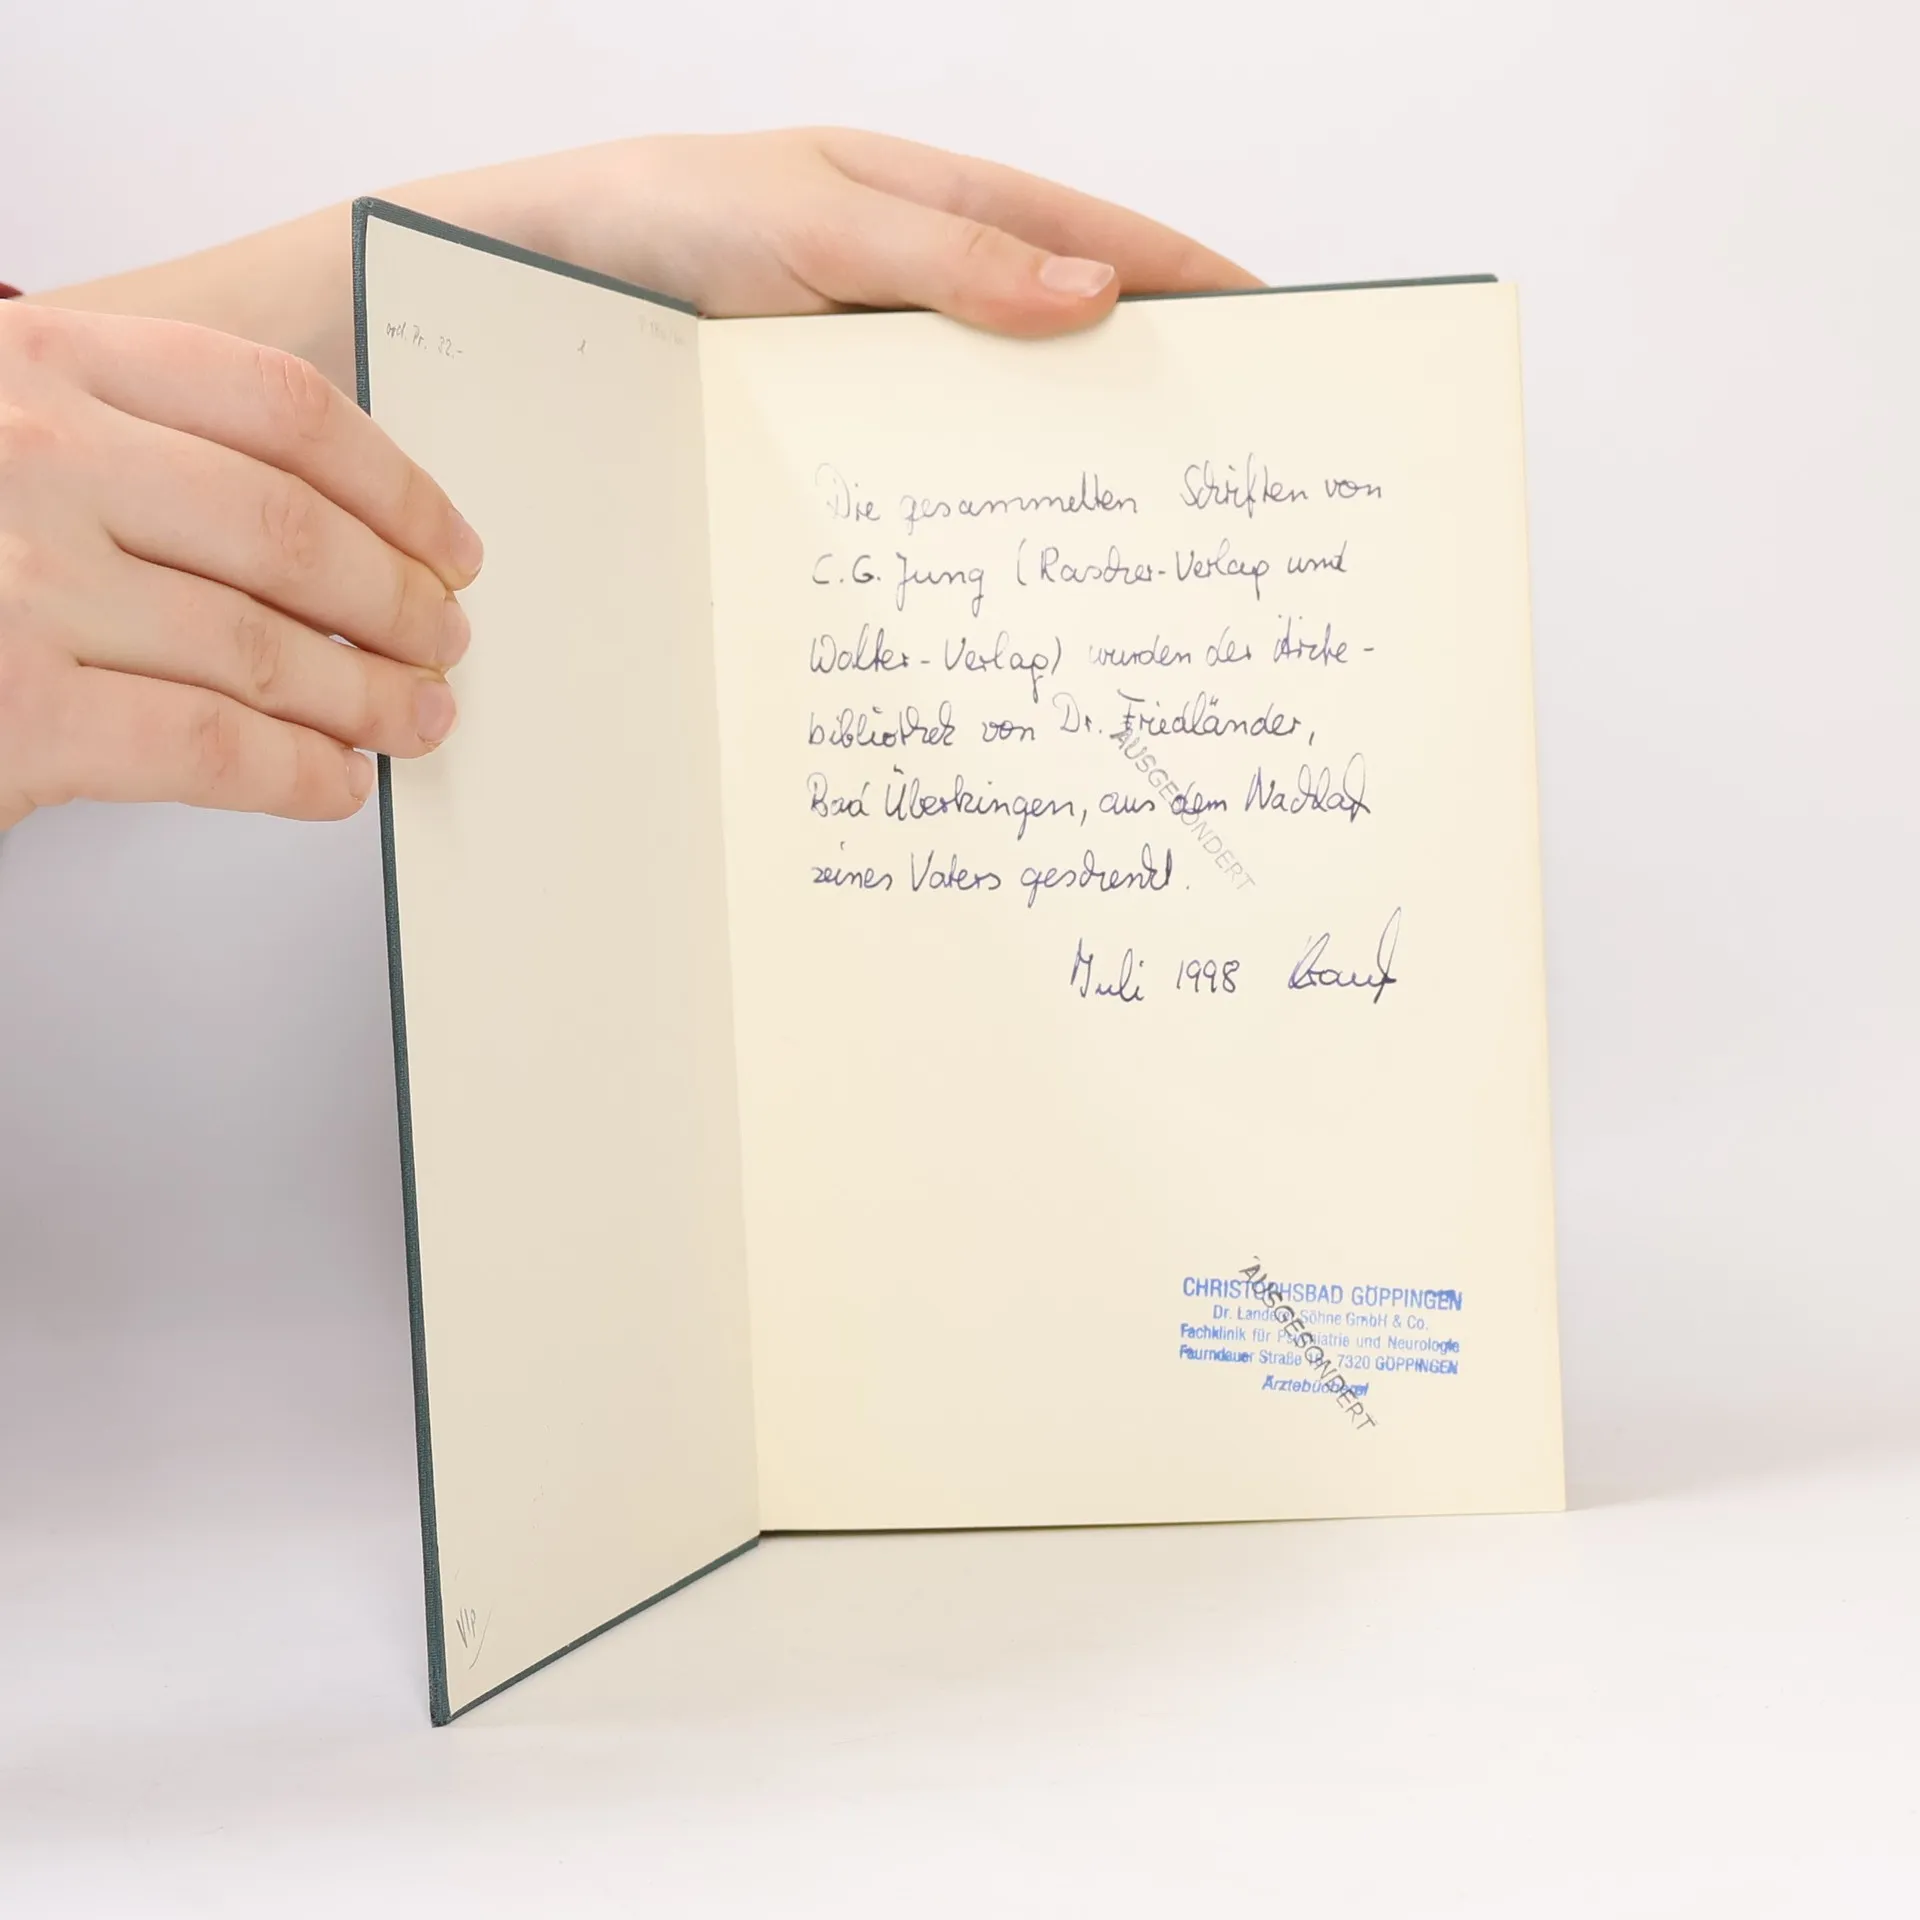 Pr. 22.-
Die gesammelten Schriften von
C.G. Jung (Rascher-Verlag und
Walter-Verlag) wurden der Ärzte-
bibliothek von Dr. Friedländer,
Bad Überkingen, aus dem Nachlaß
seines Vaters geschenkt.
AUSGESONDERT
Juli 1998
CHRISTOPHSBAD GÖPPINGEN
Dr. Landerer Söhne GmbH & Co.
Fachklinik für Psychiatrie und Neurologie
Faurndauer Straße 7320 GÖPPINGEN
Ärztebücherei
AUSGESONDERT
VIP